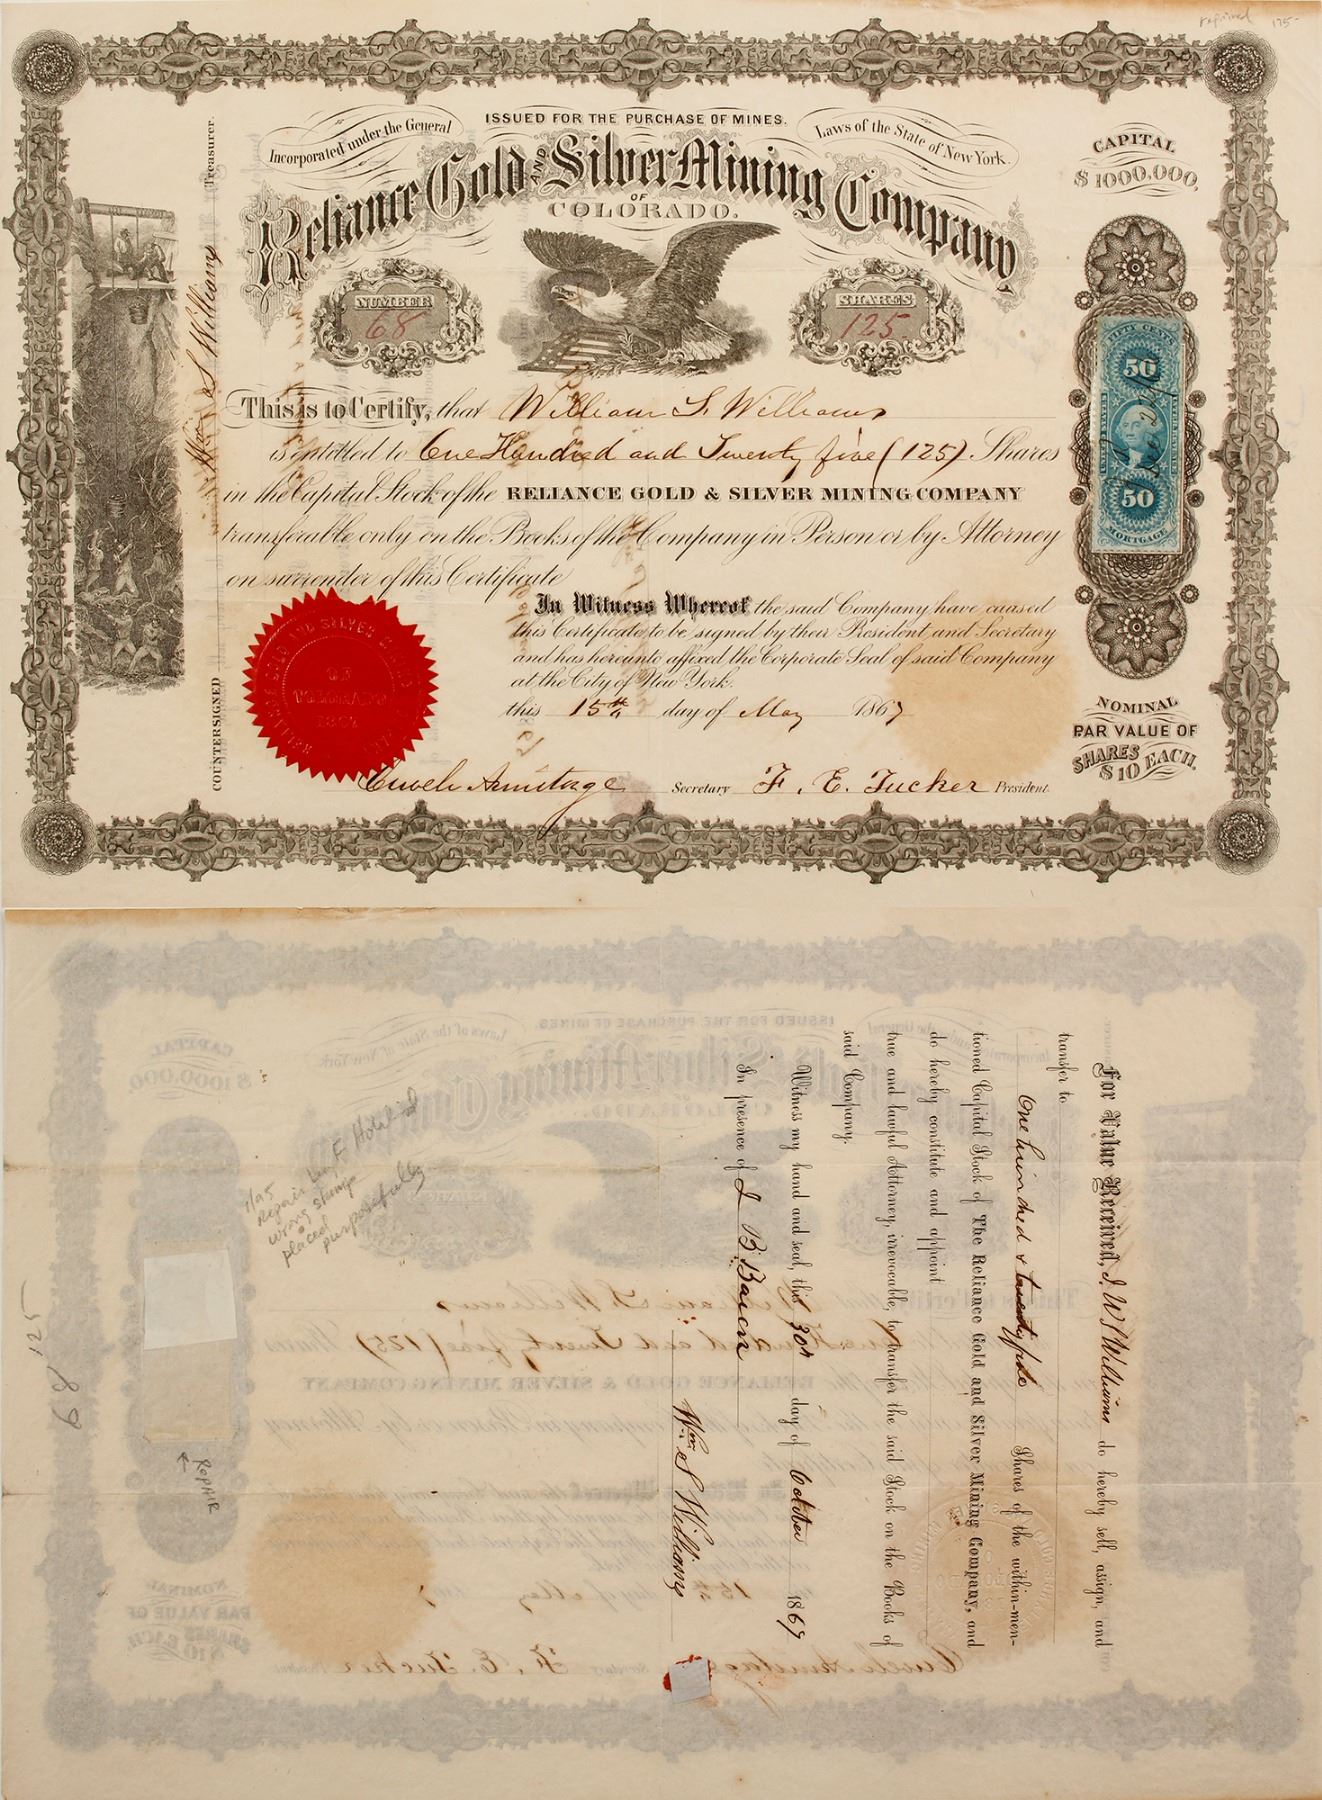 repaired 175-
ISSUED FOR THE PURCHASE OF MINES.
Incorporated under the General Laws of the State of New York.
Reliance Gold AND Silver Mining Company
OF
COLORADO.
CAPITAL
$1000,000,
NUMBER
68
SHARES
125
This is to Certify, that William S. Williams
is entitled to One Hundred and Twenty five (125) Shares
in the Capital Stock of the RELIANCE GOLD & SILVER MINING COMPANY
transferable only on the Books of the Company in Person or by Attorney
on surrender of this Certificate
In Witness Whereof the said Company have caused
this Certificate to be signed by their President and Secretary
and has hereunto affixed the Corporate Seal of said Company
at the City of New York.
this 15th day of May 1867
Armitage Secretary F. E. Tucker President
COUNTERSIGNED Wm S Williams Treasurer.
RELIANCE GOLD AND SILVER MINING
OF
COLORADO
FIFTY CENTS
50
50
MORTGAGE
NOMINAL
PAR VALUE OF
SHARES
$10 EACH.
For Value Received, I, W S Williams do hereby sell, assign, and
transfer to
One hundred & twenty five Shares of the within-men-
tioned Capital Stock of The Reliance Gold and Silver Mining Company, and
do hereby constitute and appoint
true and lawful Attorney, irrevocable, to transfer the said Stock on the Books of
said Company.
Witness my hand and seal, this 30th day of October 1867
In presence of
Wm S Williams
1/95
Repair by F. Holabird
wrong stamp
placed
purposefully
REPAIR
68 125